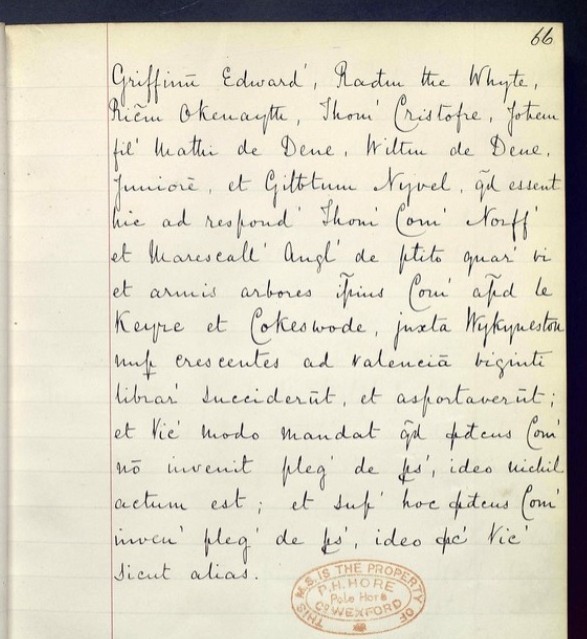 66
Griffinū Edward', Radm the Whyte,
Ricm̄ Okenayth, Thom' Cristofre, Johem
fil' Mathi de Dene, Willm de Dene,
Juniorē, et Gilbtum Nyvel, q̄d essent
hic ad respond' Thom' Com' Norff'
et Marescall' Angl' de ptito quar' vi
et armis arbores ip̄ius Com' ap̄d le
Keyre et Cokeswode, juxta Wykyneston
nup̱ crescentes ad valenciā viginti
librar' succiderūt, et asportaverūt;
et Vic' modo mandat q̄d p̱dcus Com'
nō invenit pleg' de p̱s', ideo nichil
actum est; et sup' hoc p̱dcus Com'
inven' pleg' de p̱s', ideo p̱c' Vic'
sicut alias.
THIS M.S. IS THE PROPERTY OF
P.H. HORE
Pole Hore
Co WEXFORD